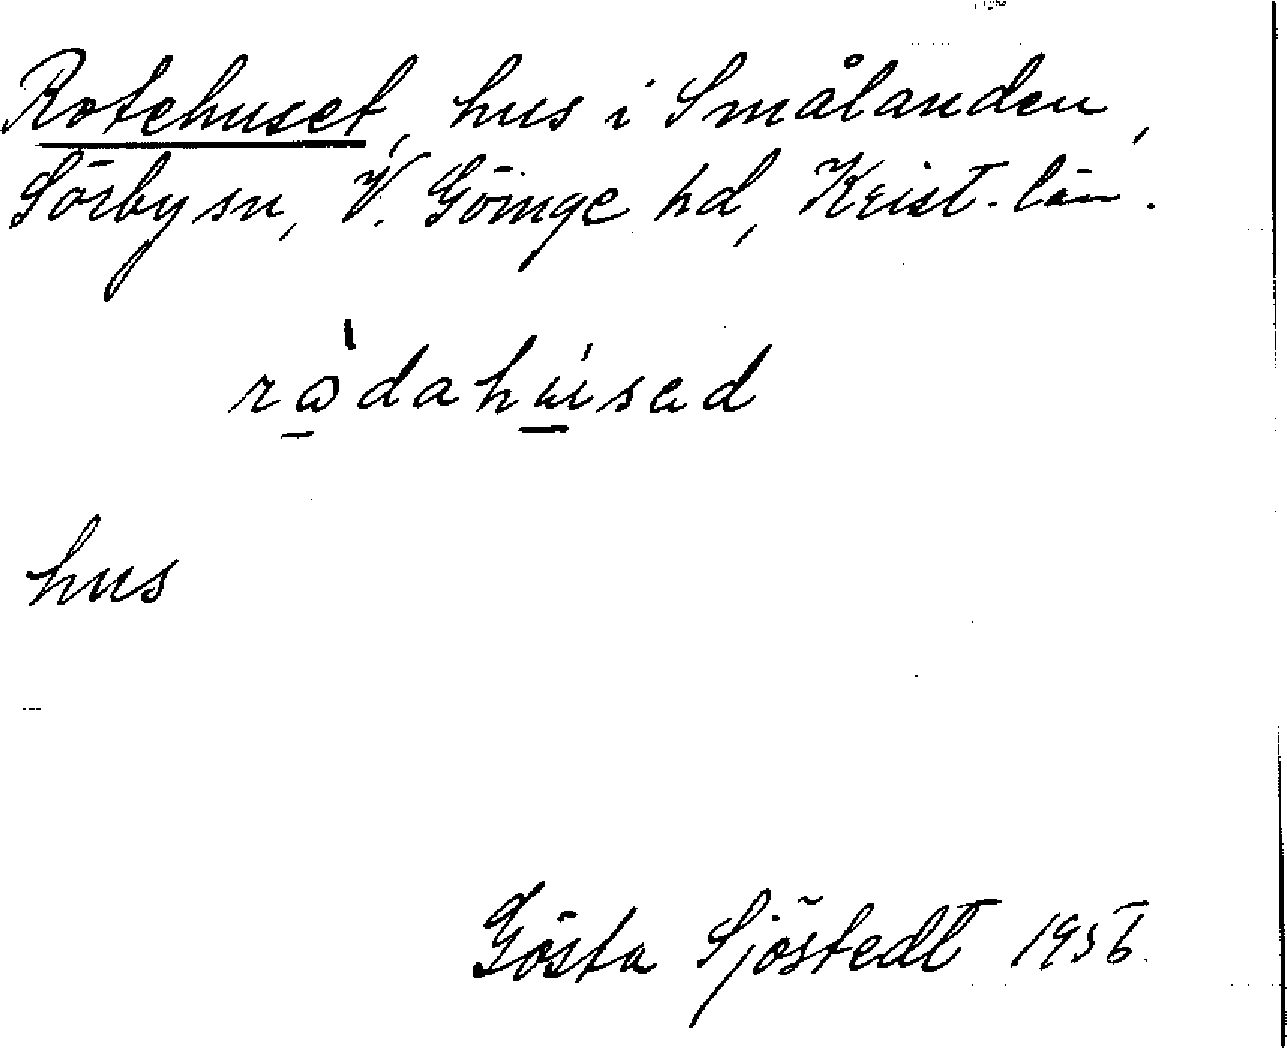 Rotehuset, hus i Smålanden,
Sörby sn, V. Göinge hd, Krist. län.
hus
Gösta Sjöstedt 1956